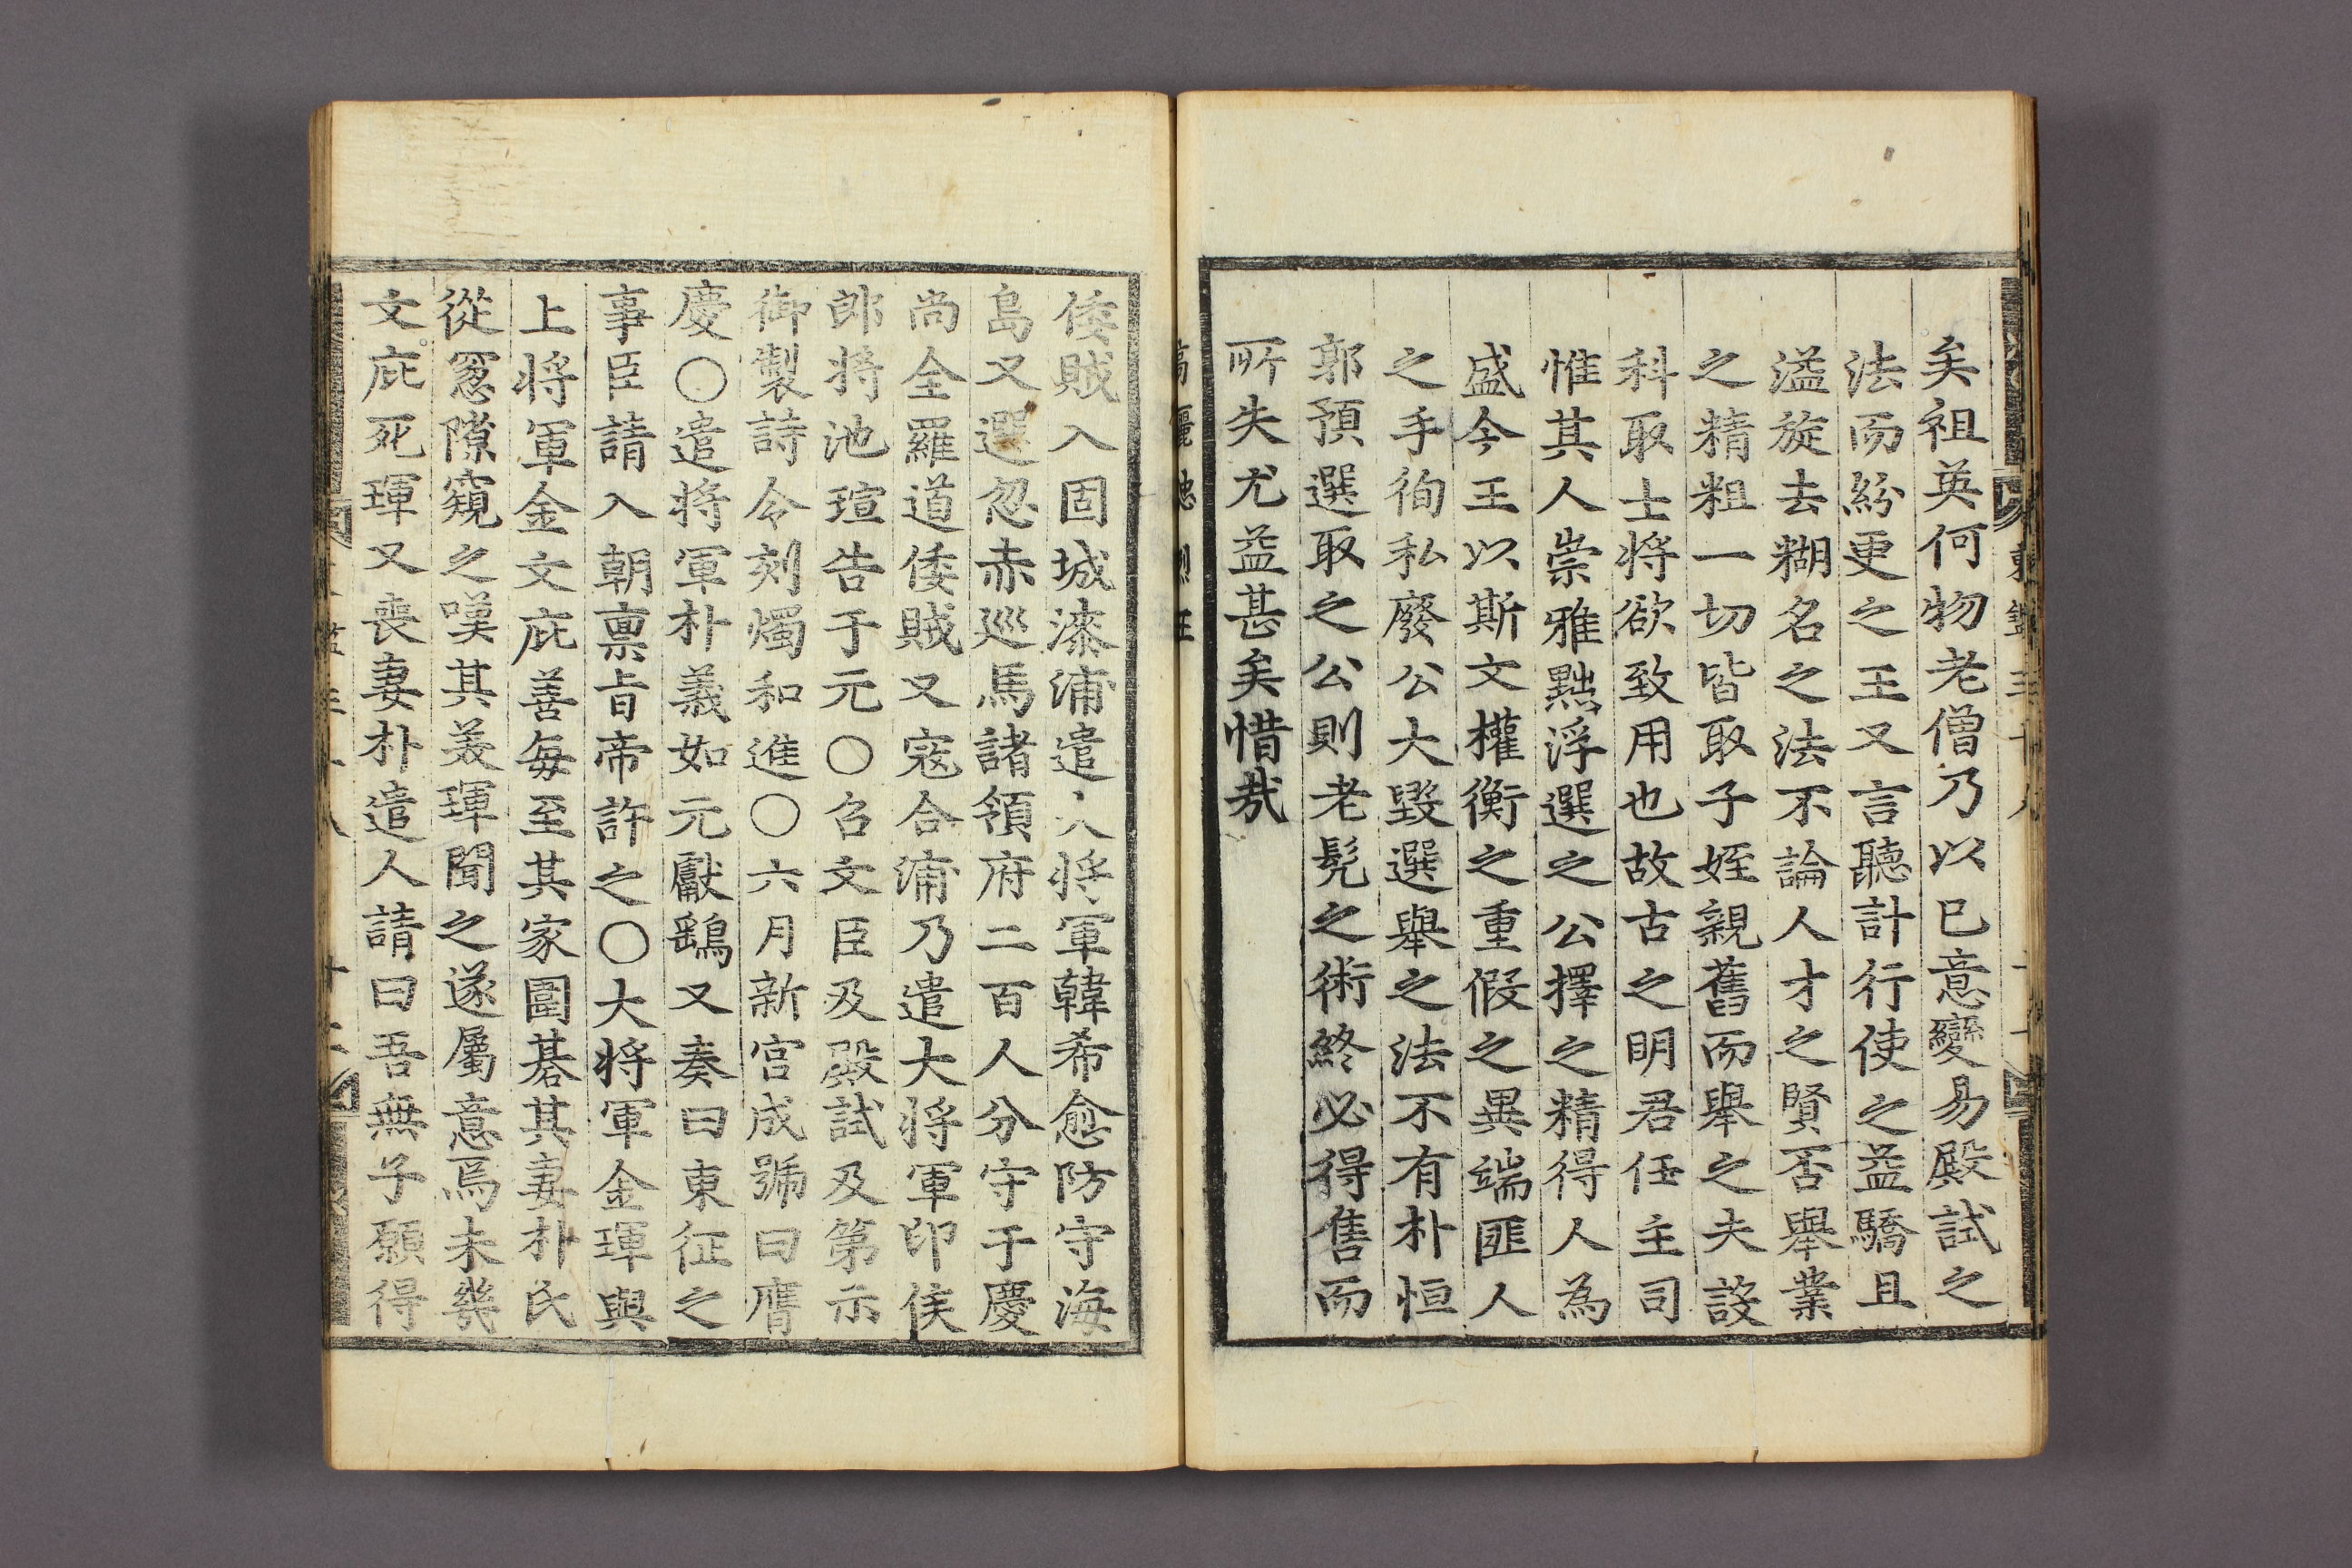 矣祖英何物老僧乃以已意變易殿試之
法而紛更之王又言聽計行使之益驕且
溢旋去糊名之法不論人才之賢否舉業
之精粗一切皆取子姪親舊而舉之夫設
科取士將欲致用也故古之明君任主司
惟其人崇雅黜浮選之公擇之精得人為
盛今王以斯文權衡之重假之異端匪人
之手徇私廢公大毀選舉之法不有朴恒
郭預選取之公則老髡之術終必得售而
所失尤益甚矣惜哉
高麗忠烈王
倭賊入固城漆浦遣大將軍韓希愈防守海
島又選忽赤巡馬諸領府二百人分守于慶
尚全羅道倭賊又寇合浦乃遣大將軍印侯
郎將池瑄告于元〇召文臣及殿試及第示
御製詩令刻燭和進〇六月新宮成號曰膺
慶〇遣將軍朴義如元獻鷂又奏曰東征之
事臣請入朝稟旨帝許之〇大將軍金琿與
上將軍金文庇善每至其家圍碁其妻朴氏
從窓隙窺之嘆其美琿聞之遂屬意焉未幾
文庇死琿又喪妻朴遣人請曰吾無子願得